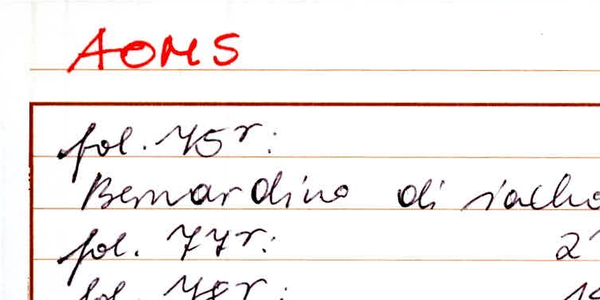 AOMS
fol. 75r:
Bernardino di iacho
fol. 77r: 2
fol. 78r: